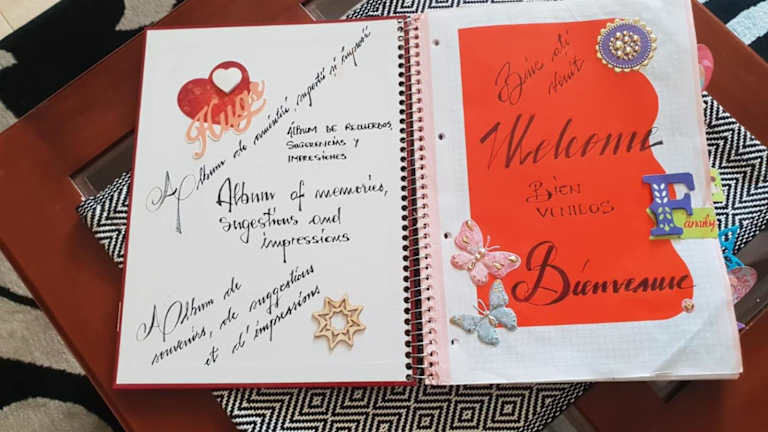 Hugs
Album de amintiri
ALBUM DE RECUERDOS,
SUGERENCIAS Y
IMPRESIONES
Album of memories,
sugestions and
impressions
Album de
souvenirs, de suggestions
et d'impressions
Bine ați
venit
Welcome
BIEN
VENIDOS
Bienvenue
F
Family